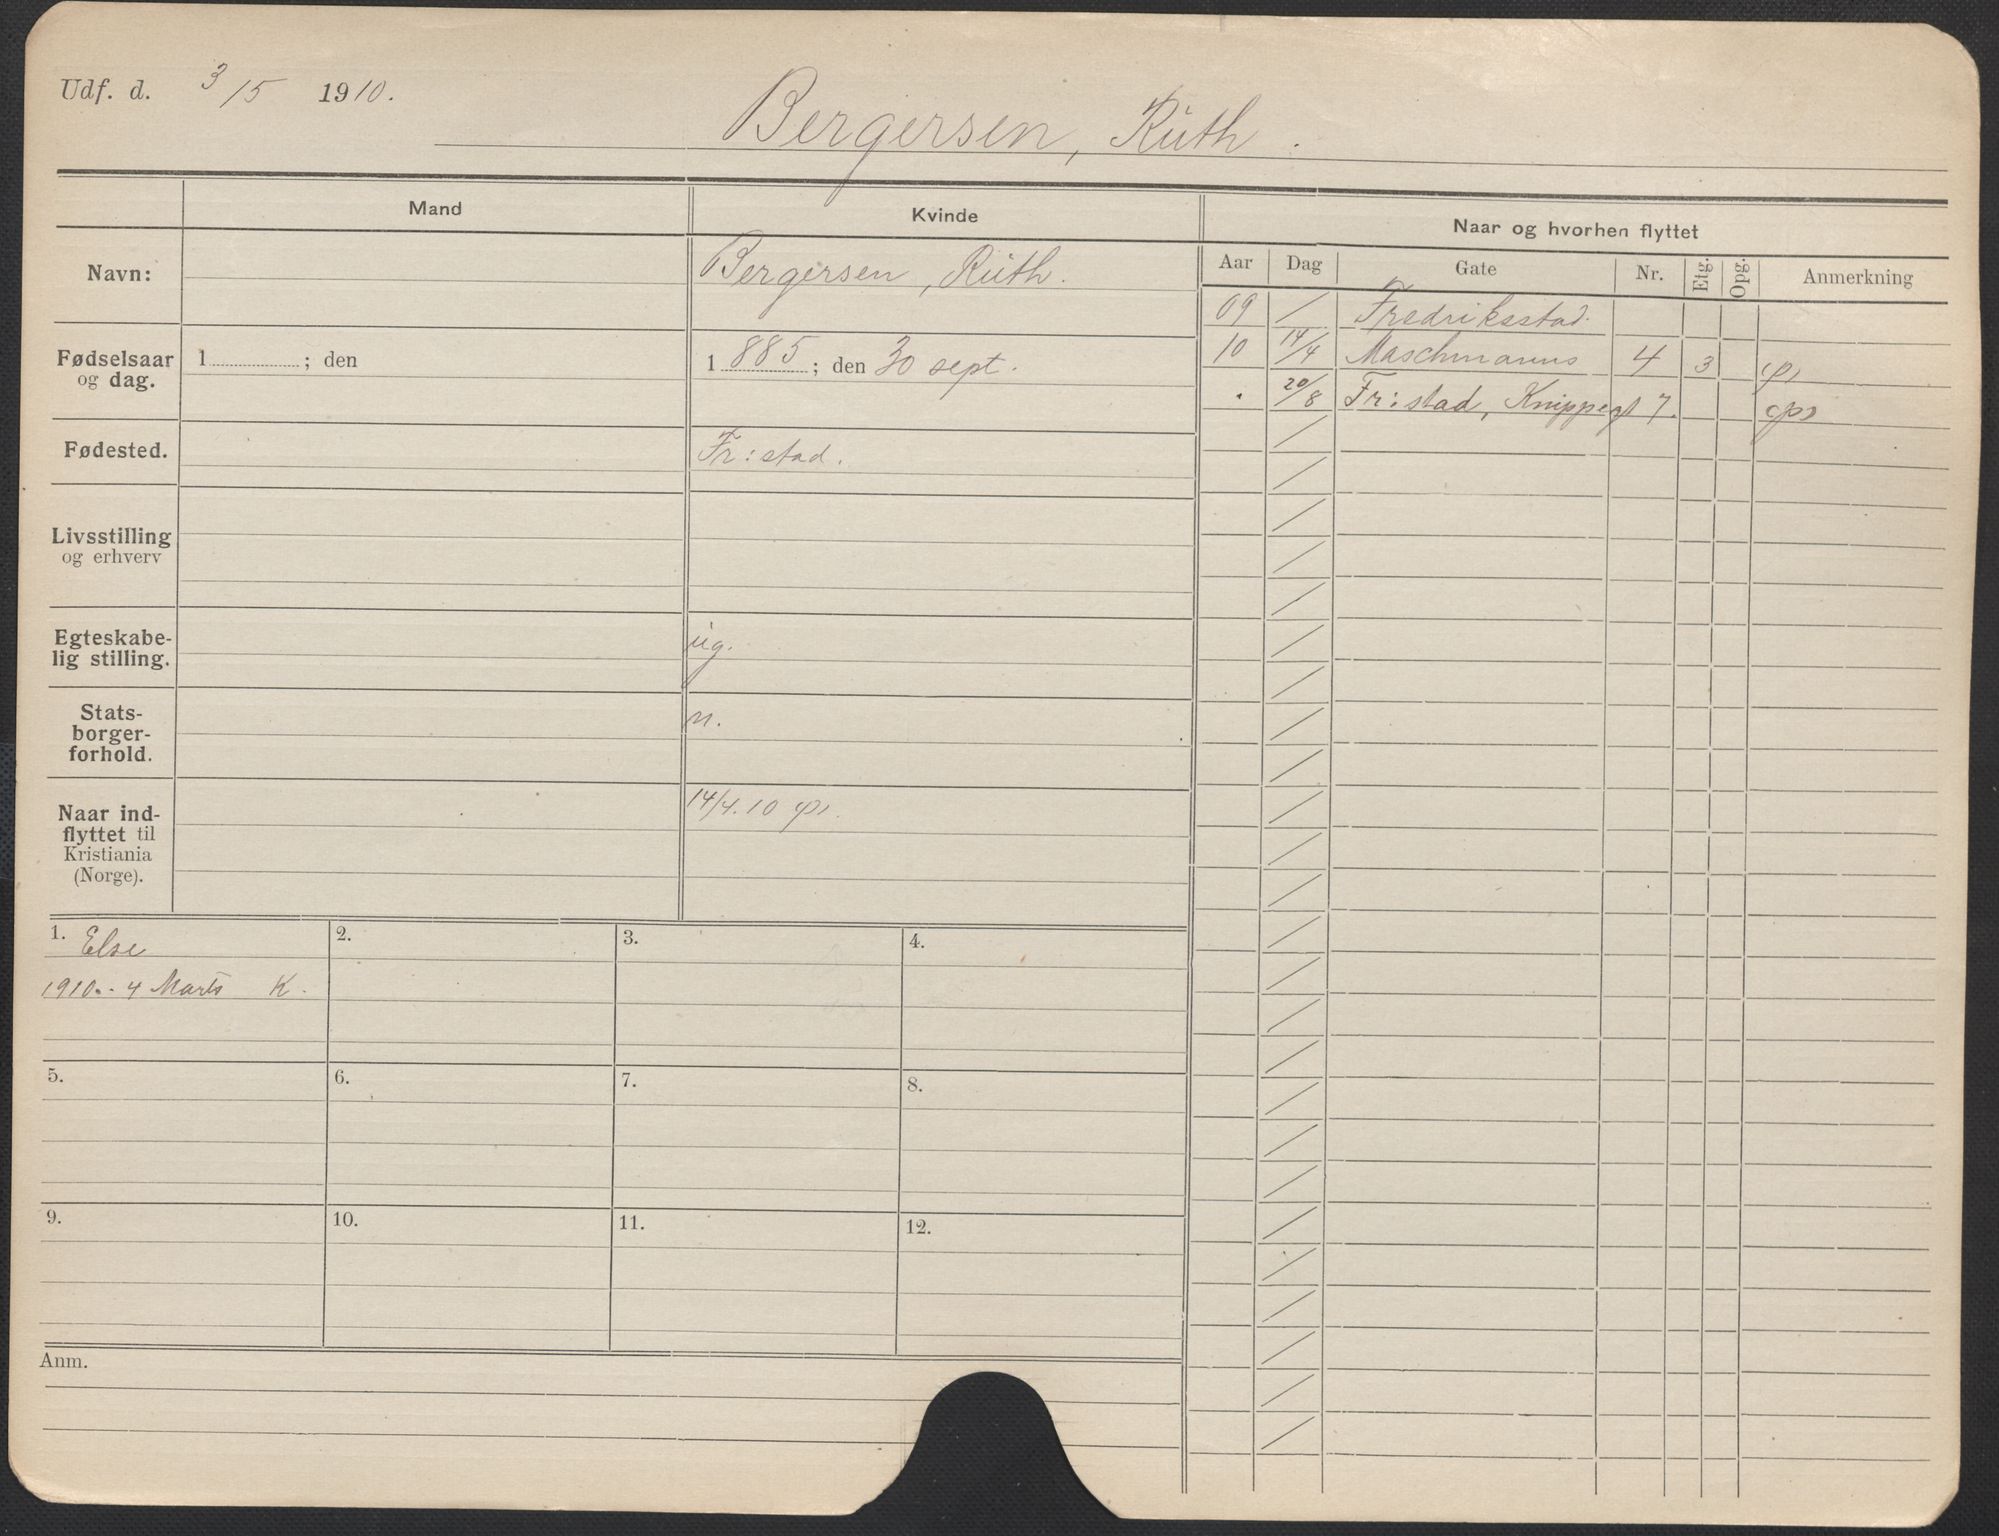 Udf. d. 3/5 1910.
Bergersen, Ruth.
Mand
Kvinde
Naar og hvorhen flyttet
Aar Dag Gate Nr. Etg. Opg. Anmerkning
Navn:
Bergersen, Ruth.
09 / Fredriksstad.
10 14/4 Maschmanns 4 3
Fødselsaar og dag.
1 ; den
1 885 ; den 30 sept.
" 20/8 Fr:stad, Knippegt 7.
Fødested.
Fr:stad.
Livsstilling
og erhverv
Egteskabe-
lig stilling.
ug.
Stats-
borger-
forhold.
n.
Naar ind-
flyttet til
Kristiania
(Norge).
14/4.10
1. Else
1910. - 4 Marts K.
2.
3.
4.
5.
6.
7.
8.
9.
10.
11.
12.
Anm.